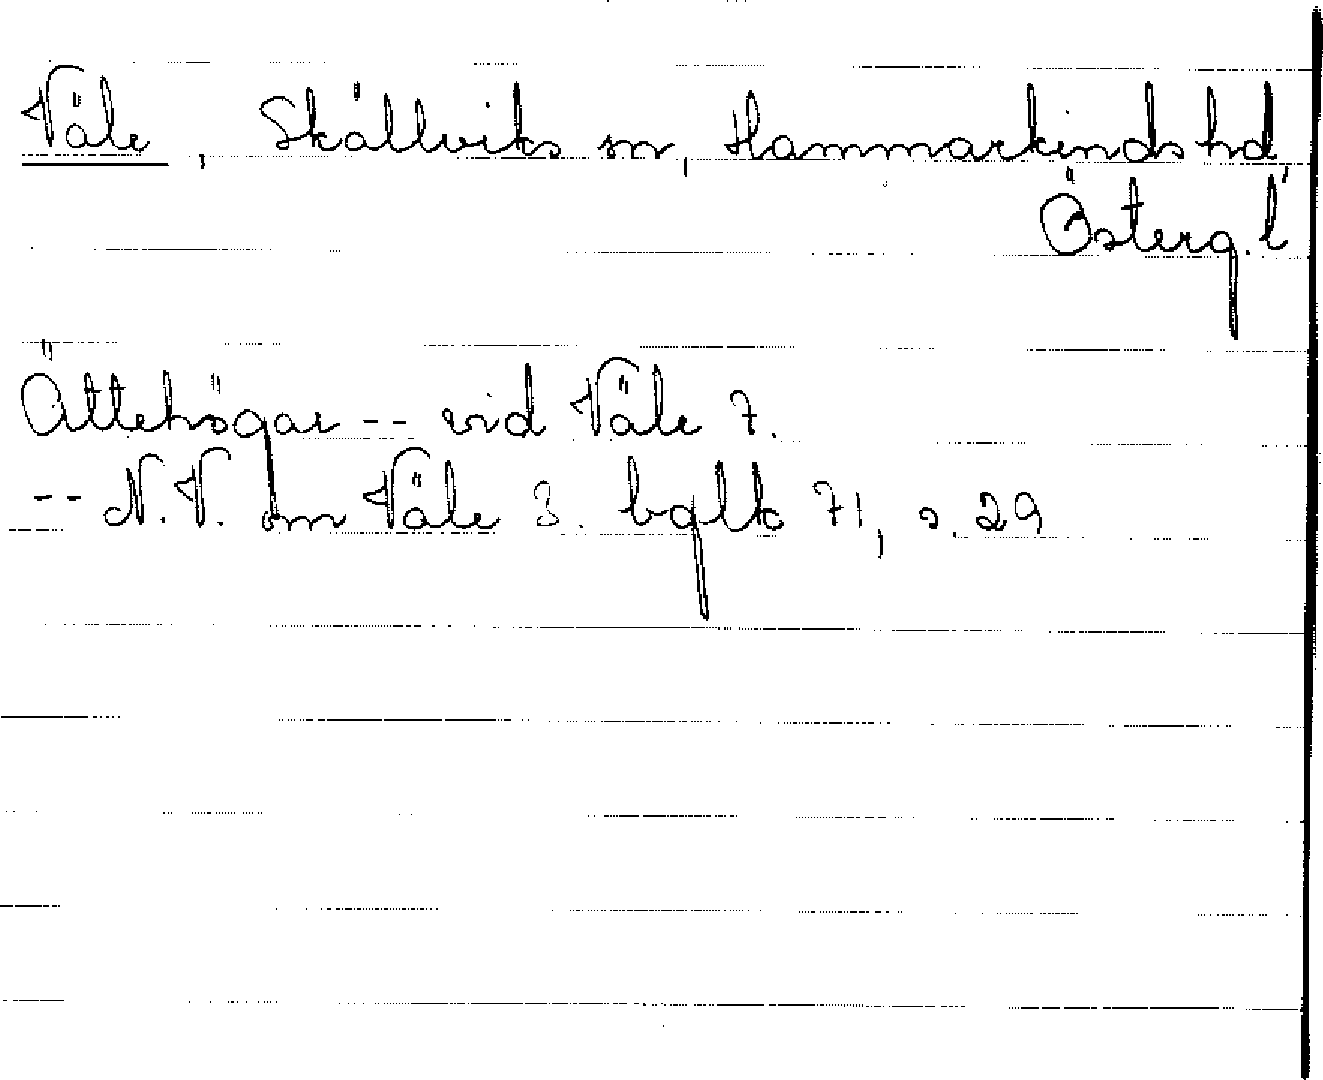 Väle, Skällviks sn, Hammarkinds hd,
Österg. l
Ättehögar -- vid Väle 7.
-- N.V. om Väle 3. bglb 71, s. 29